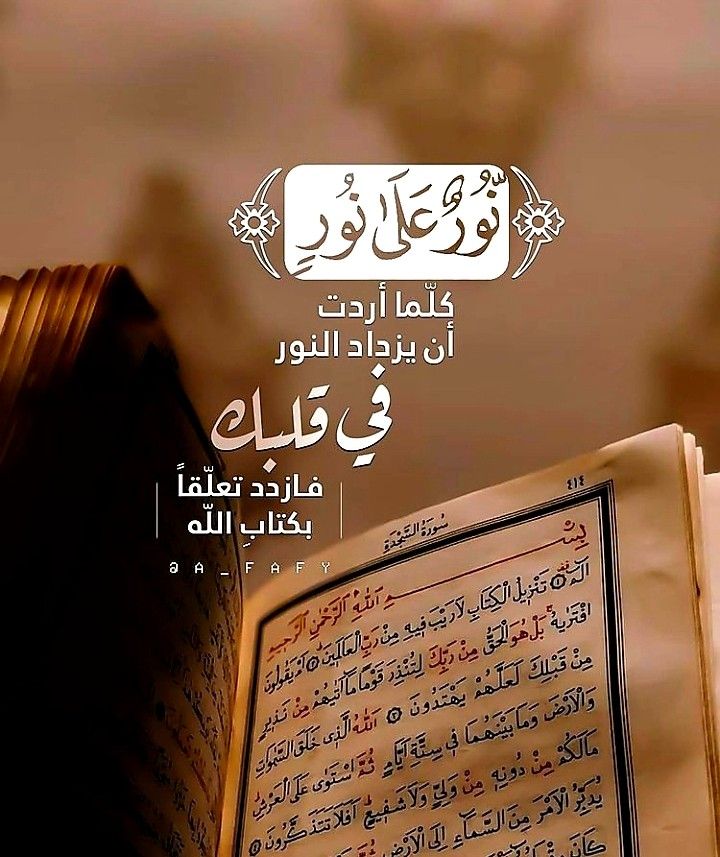 نُّورٌ عَلَىٰ نُورٍ
كلّما أردت
أن يزداد النور
في قلبك
فازدد تعلّقاً
بكتابِ اللّه
@A_FAFY
٤١٤
سُورَةُ السَّجْدَةِ
بِسْمِ اللّٰهِ الرَّحْمٰنِ الرَّحِيمِ
الٓمٓ ۝ تَنْزِيلُ الْكِتَابِ لَا رَيْبَ فِيهِ مِنْ رَبِّ الْعَالَمِينَ ۝ اَمْ يَقُولُونَ
افْتَرٰيهُ بَلْ هُوَ الْحَقُّ مِنْ رَبِّكَ لِتُنْذِرَ قَوْمًا مَا اَتٰيهُمْ مِنْ نَذِيرٍ
مِنْ قَبْلِكَ لَعَلَّهُمْ يَهْتَدُونَ ۝ اَللّٰهُ الَّذِي خَلَقَ السَّمٰوَاتِ
وَالْاَرْضَ وَمَا بَيْنَهُمَا فِي سِتَّةِ اَيَّامٍ ثُمَّ اسْتَوٰى عَلَى الْعَرْشِ
مَا لَكُمْ مِنْ دُونِهِ مِنْ وَلِيٍّ وَلَا شَفِيعٍ اَفَلَا تَتَذَكَّرُونَ ۝
يُدَبِّرُ الْاَمْرَ مِنَ السَّمَاءِ اِلَى الْاَرْضِ ثُمَّ